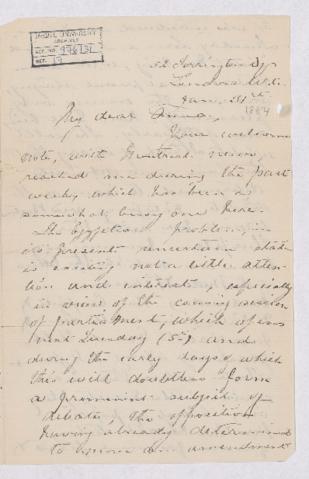 McGILL UNIVERSITY
ARCHIVES
ACC. NO.
REF.
52 Torrington Sq.
London W.C.
Jan. 31st
1884
My dear Anna,
Your welcome
note, with Montreal news
reached me during the past
week, which has been a
somewhat busy one here.
The Egyptian problem in
its present uncertain state
is exciting not a little atten-
tion and interest especially
in view of the coming session
of parliament, which opens
next Tuesday (5th) and
during the early days of which
this will doubtless form
a prominent subject of
debate, the opposition
having already determined
to move an amendment